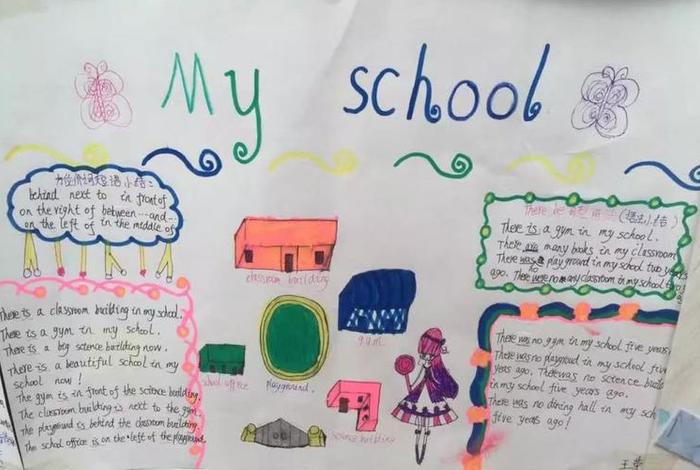 My school
方位介词短语小结:
behind next to in front of
on the right of between ...and...
on the left of in the middle of
There is a classroom building in my school.
There is a gym in my school.
There is a big science building now.
There is a beautiful school in my
school now!
The gym is in front of the science building.
The classroom building is next to the gym.
The playground is behind the classroom building.
The school office is on the left of the playground.
classroom building
gym
school office
playground.
science building
There be
There is a gym in my school.
There are many books in my classroom
There was a playground in my school two years
ago. There were no many classroom in my school
There was no gym in my school five years
There was no playground in my school five
years ago. There was no science build
in my school five years ago.
There was no dining hall in my sch
five years ago!